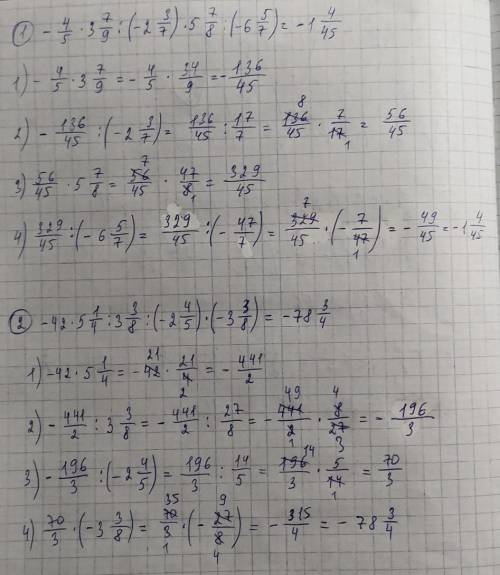 ① - 4/5 · 3 7/9 : (-2 3/7) · 5 7/8 : (-6 5/7) = -1 4/45
1) - 4/5 · 3 7/9 = - 4/5 · 34/9 = - 136/45
2) - 136/45 : (-2 3/7) = 136/45 : 17/7 = 136/45 8 · 7/17 1 = 56/45
3) 56/45 · 5 7/8 = 56/45 7 · 47/8 1 = 329/45
4) 329/45 : (-6 5/7) = 329/45 : (- 47/7) = 329/45 7 · (- 7/47 1) = - 49/45 = -1 4/45
② -42 · 5 1/4 : 3 3/8 : (-2 4/5) · (-3 3/8) = -78 3/4
1) -42 · 5 1/4 = - 42 21 · 21/4 2 = - 441/2
2) - 441/2 : 3 3/8 = - 441/2 : 27/8 = - 441/2 49 1 · 8/27 4 3 = - 196/3
3) - 196/3 : (-2 4/5) = 196/3 : 14/5 = 196/3 14 · 5/14 1 = 70/3
4) 70/3 · (-3 3/8) = 70/3 35 1 · (- 27/8 9 4) = - 315/4 = -78 3/4